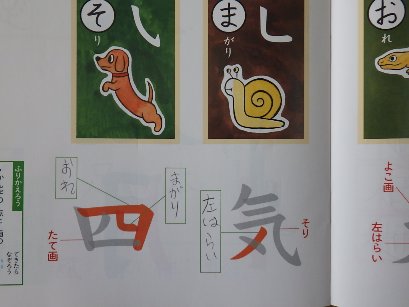 お
れ
ま
がり
そ
り
よこ画
左はらい
気
そり
左はらい
四
まがり
おれ
たて画
ふりかえろう
できたら
なぞろう